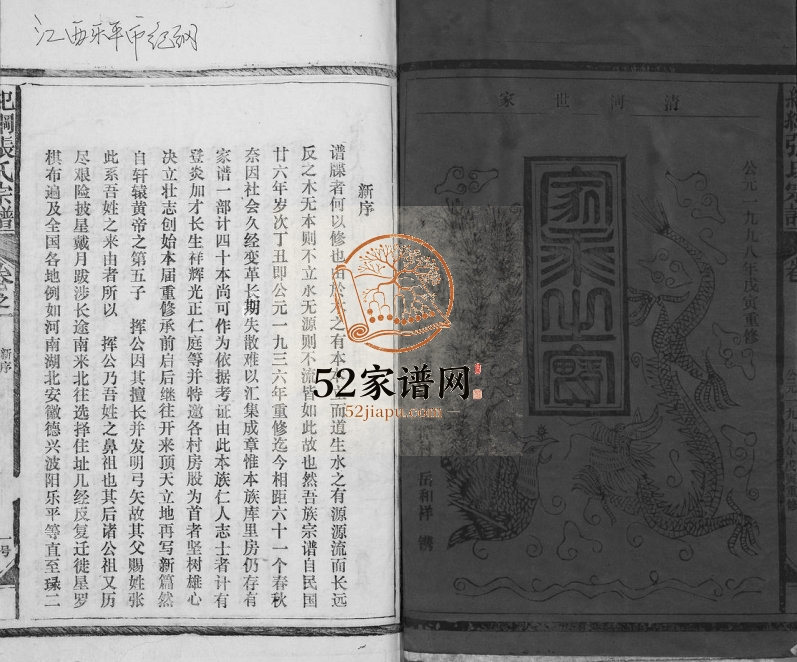 江西乐平市纪纲
清河世家
公元一九九八年戊寅重修
家乘之宝
岳和祥 镌
纪纲张氏宗谱
卷之
新序
一号
新序
谱牒者何以修也由於人之有本而道生水之有源源流而长远
反之木无本则不立水无源则不流皆如此故也然吾族宗谱自民国
廿六年岁次丁丑即公元一九三六年重修迄今相距六十一个春秋
奈因社会久经变革长期失散难以汇集成章惟本族库里房仍存有
家谱一部计四十本尚可作为依据考证由此本族仁人志士者计有
登炎加才长生祥辉光正仁庭等并特邀各村房股为首者坚树雄心
决立壮志创始本届重修承前启后继往开来顶天立地再写新篇然
自轩辕黄帝之第五子 挥公因其擅长并发明弓矢故其父赐姓张
此系吾姓之来由者所以 挥公乃吾姓之鼻祖也其后诸公祖又历
尽艰险披星戴月跋涉长途南来北往选择住址几经反复迁徙星罗
棋布遍及全国各地例如河南湖北安徽德兴波阳乐平等直至琭二
52家谱网
52jiapu.com